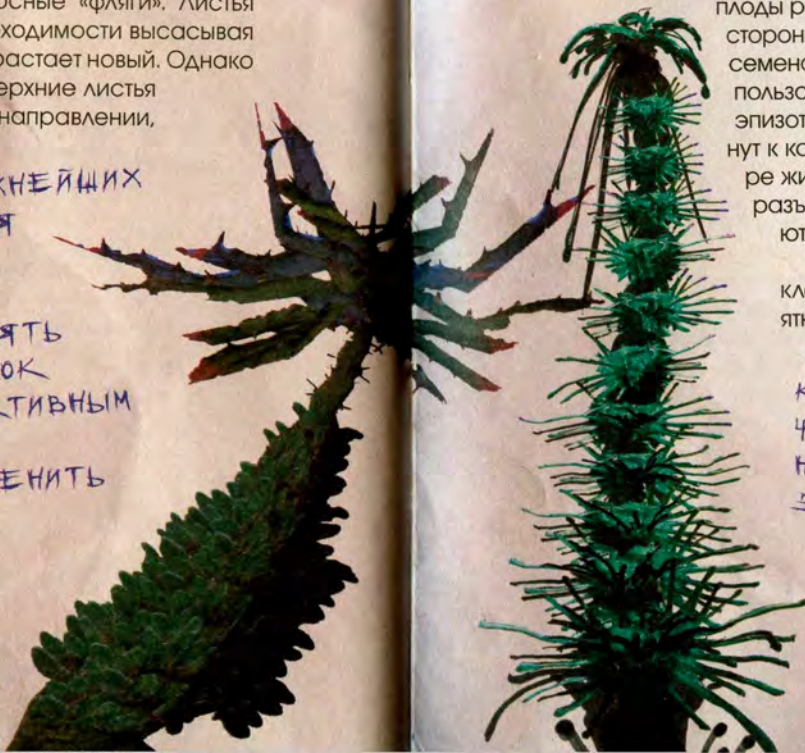 осные «фляги». Листья
ходимости высасывая
растает новый. Однако
ерхние листья
направлении,
ЖНЕЙШИХ
Я
ЯТЬ
ОК
КТИВНЫМ
ЕНИТЬ
плоды р
сторон
семено
пользо
эпизот
нут к ко
ре жи
разъ
ют
кл
ятн
К
Ч
Н